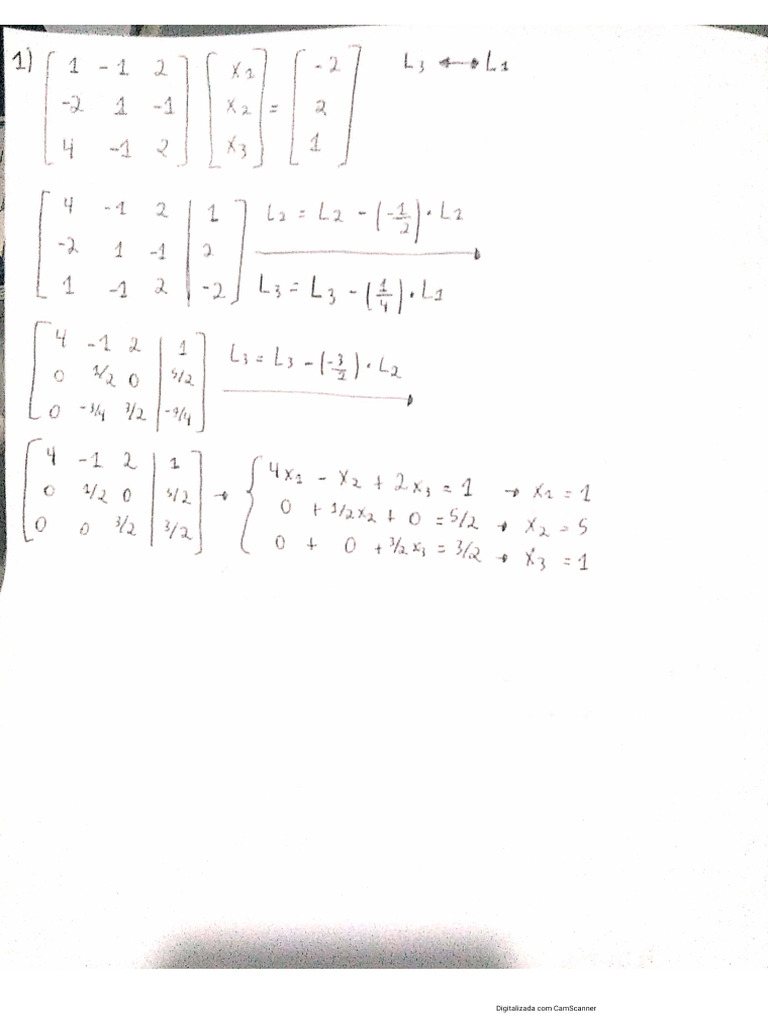 1) [1 -1 2; -2 1 -1; 4 -1 2] [x1; x2; x3] = [-2; 2; 1] L3 ↔ L1
[4 -1 2 | 1; -2 1 -1 | 2; 1 -1 2 | -2] L2 = L2 - (-1/2) · L1
L3 = L3 - (1/4) · L1
[4 -1 2 | 1; 0 1/2 0 | 5/2; 0 -3/4 3/2 | -9/4] L3 = L3 - (-3/2) · L2
[4 -1 2 | 1; 0 1/2 0 | 5/2; 0 0 3/2 | 3/2] → { 4x1 - x2 + 2x3 = 1 → x1 = 1
0 + 1/2x2 + 0 = 5/2 → x2 = 5
0 + 0 + 3/2x3 = 3/2 → x3 = 1
Digitalizada com CamScanner